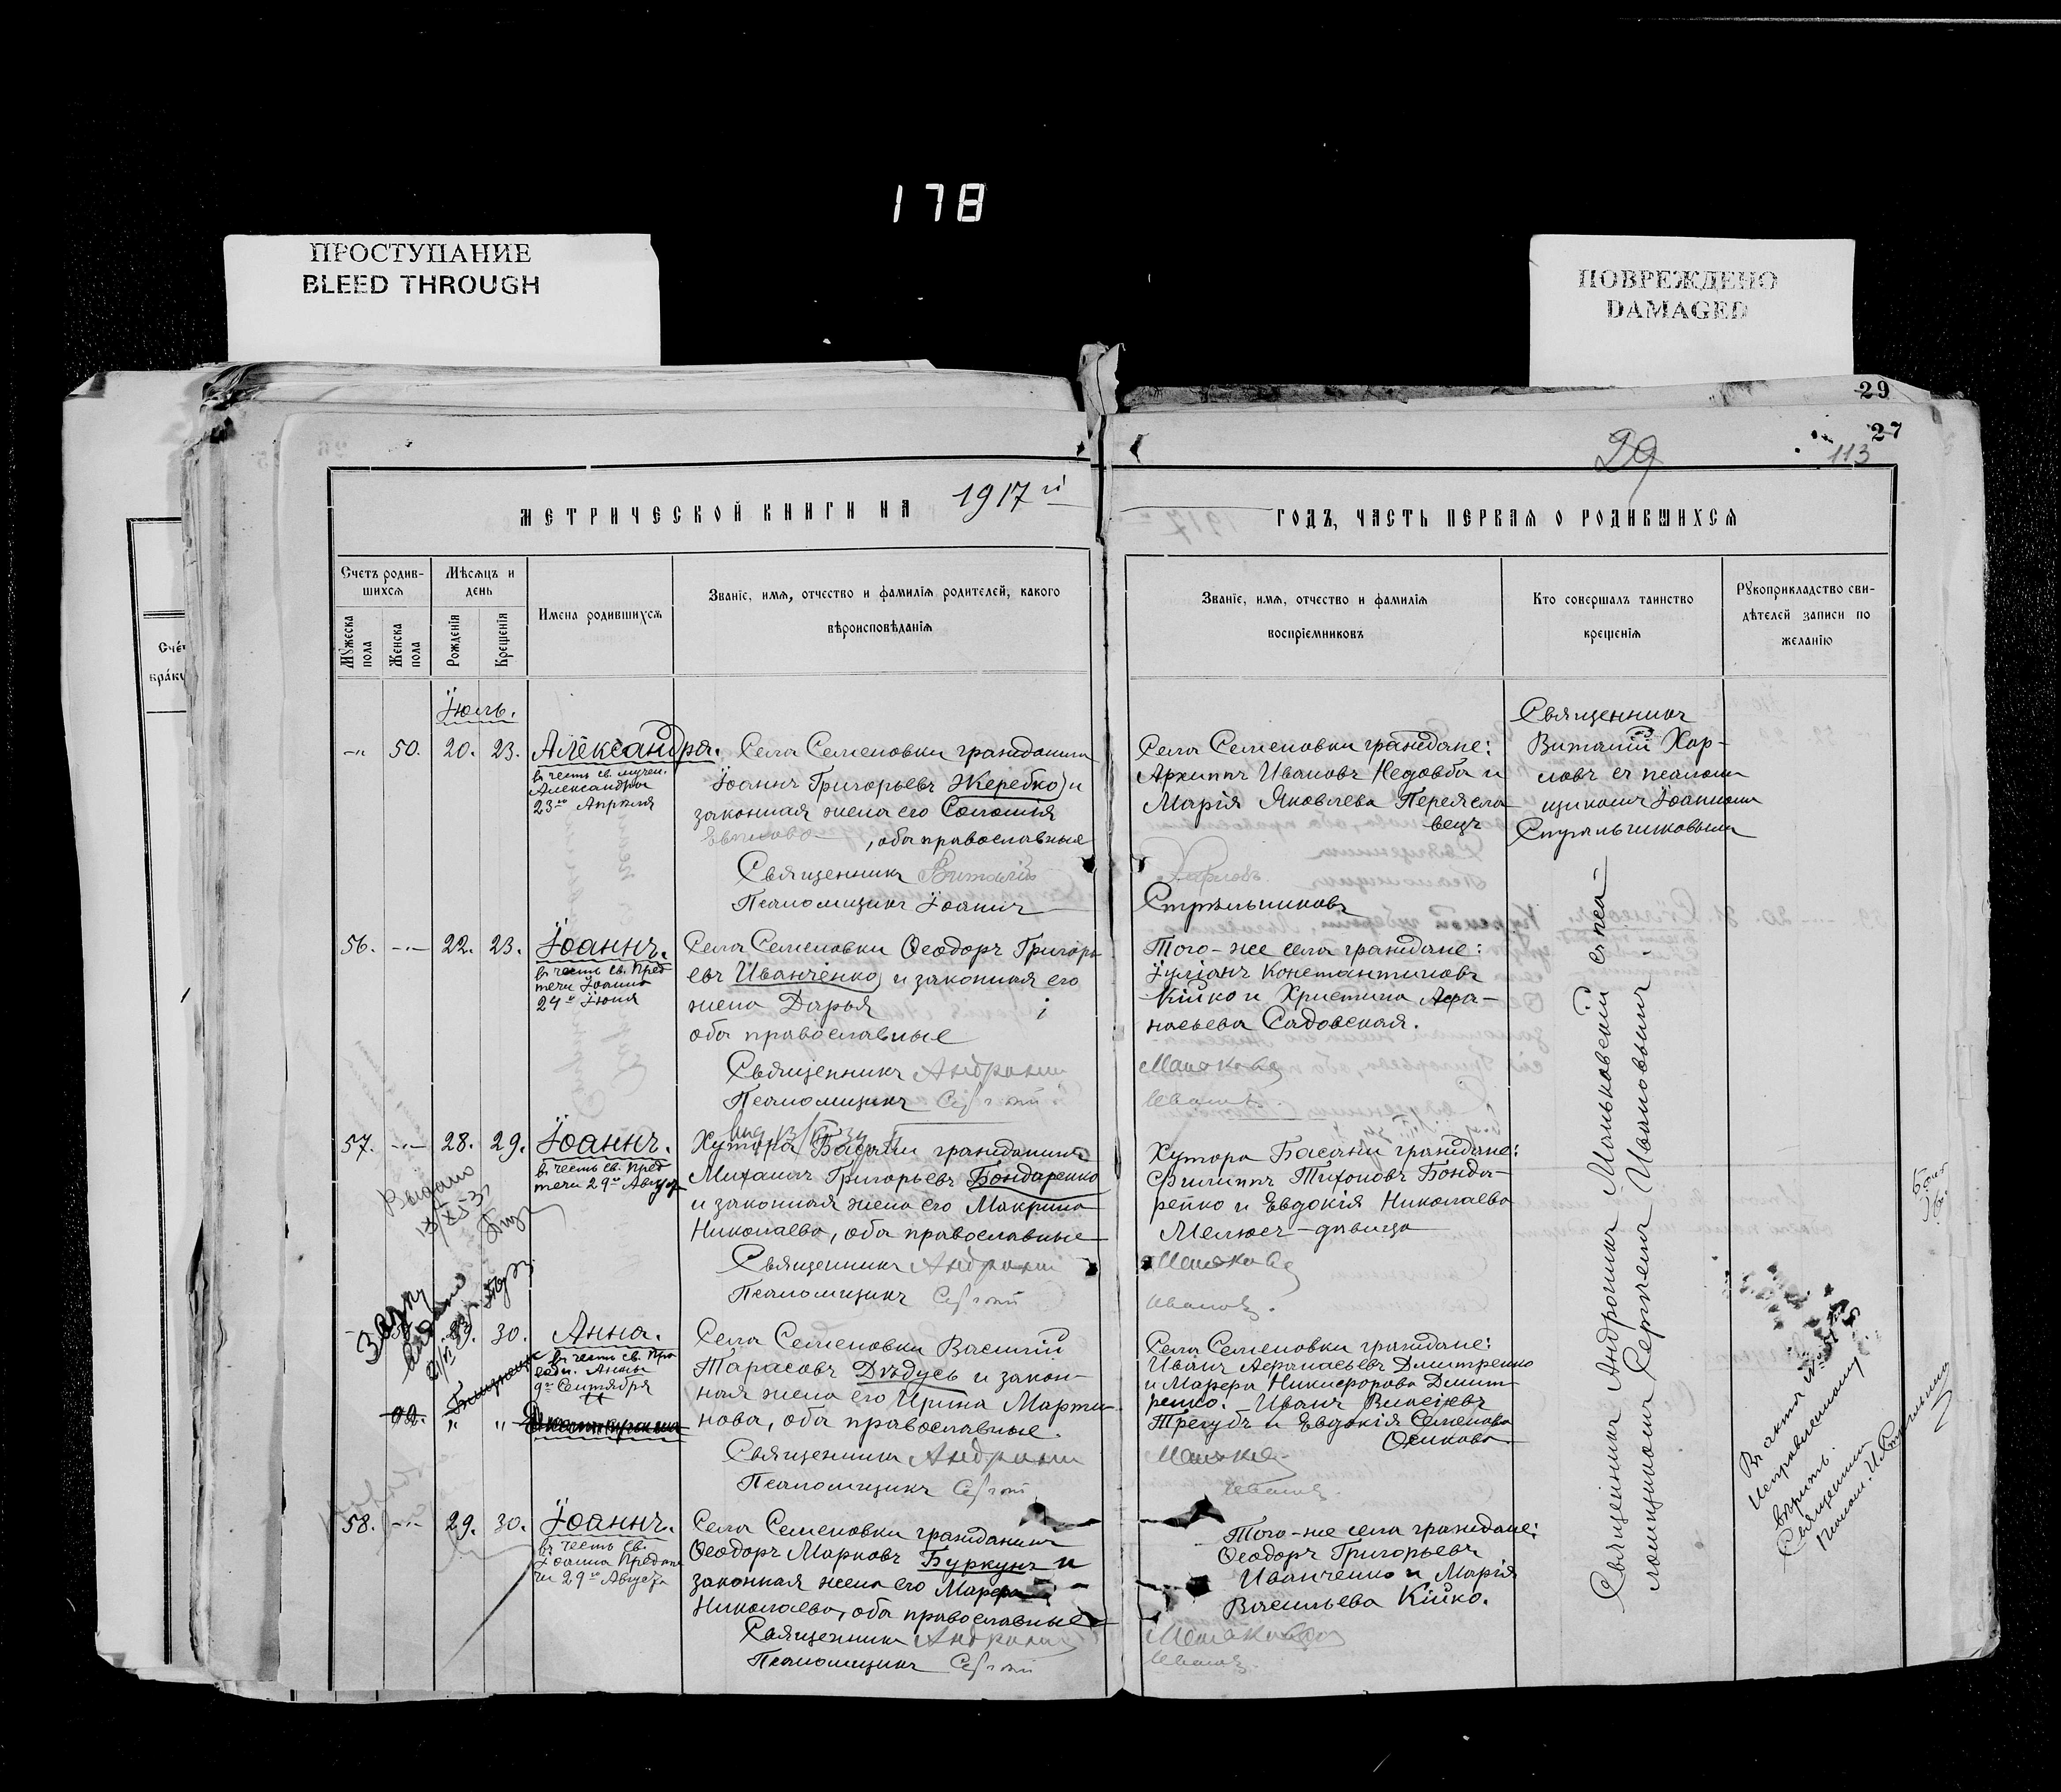 178
ПРОСТУПАНИЕ
BLEED THROUGH
ПОВРЕЖДЕНО
DAMAGED
29
27
29
113
МЕТРИЧЕСКОЙ КНИГИ НА 1917 й
ГОДЪ, ЧАСТЬ ПЕРВАЯ О РОДИВШИХСЯ
Счетъ родив-
шихся
Мужеска пола
Женска пола
Мѣсяцъ и
день
Рожденія
Крещенія
Имена родившихся
Званіе, имя, отчество и фамилія родителей, какого
вѣроисповѣданія
Званіе, имя, отчество и фамилія
воспріемниковъ
Кто совершалъ таинство
крещенія
Рукоприкладство сви-
дѣтелей записи по
желанію
Іюль.
50. 20. 23. Александра.
въ честь св. мучен.
Александры
23го Апрѣля
Села Семеновки гражданинъ
Іоаннъ Григорьевъ Жеребко и
законная жена его Соломія
, оба православные
Священникъ Виталій
Псаломщикъ Іоаннъ
Села Семеновки граждане:
Архиппъ Ивановъ Недовба и
Марія Яковлева Переясла-
вецъ
Харловъ.
Стрѣльниковъ
Священникъ
Виталій Хар-
ловъ съ псалом-
щикомъ Іоанномъ
Стрѣльниковымъ
56. 22. 23. Іоаннъ.
въ честь св. Пред-
течи Іоанна
24го Іюня
Села Семеновки Ѳеодоръ Григорь-
евъ Иванченко и законная его
жена Дарья
оба православные
Священникъ Андроникъ
Псаломщикъ Сергій
Того-же села граждане:
Іуліанъ Константиновъ
Кійко и Христина Афа-
насьева Садовская.
Маньковскій
Ивановъ.
57. 28. 29. Іоаннъ.
въ честь св. Пред-
течи 29го Августа
Хутора Басани гражданинъ
Михаилъ Григорьевъ Бондаренко
и законная жена его Макрина
Николаева, оба православные
Священникъ Андроникъ
Псаломщикъ Сергій
Хутора Басани граждане:
Филиппъ Тихоновъ Бонда-
ренко и Евдокія Николаева
Мелюсъ-дѣвица
Маньковскій
Ивановъ.
Выдано
29. 30. Анна.
въ честь св. Пра-
ведн. Анны
9го Сентября
Близнецы
Села Семеновки Василій
Тарасовъ Дѣдусь и закон-
ная жена его Ирина Марти-
нова, оба православные.
Священникъ Андроникъ
Псаломщикъ Сергій
Села Семеновки граждане:
Иванъ Афанасьевъ Дмитренко
и Марфа Никифорова Дмит-
ренко. Иванъ
Трегубъ и Евдокія Семенова
Осикова
Маньков
Ивановъ.
58. 29. 30. Іоаннъ.
въ честь св.
Іоанна Предте-
чи 29го Августа
Села Семеновки гражданинъ
Ѳеодоръ Марковъ Буркунъ и
законная жена его Марфа
Николаева, оба православные
Священникъ Андроникъ
Псаломщикъ Сергій
Того-же села граждане:
Ѳеодоръ Григорьевъ
Иванченко и Марія
Васильева Кійко.
Маньковскій
Ивановъ.
Священникъ Андроникъ Маньковскій съ пса-
ломщикомъ Сергіемъ Ивановымъ
Въ актѣ № 51
исправленному
вѣрить.
Священникъ
Псалом. И. Стрѣльник